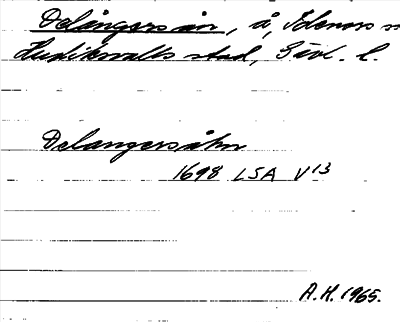 Delångersån, å, Idenors s
Hudiksvalls stad, Gävl. l.
Delangersåhn
1698 LSA V13
A.H. 1965.